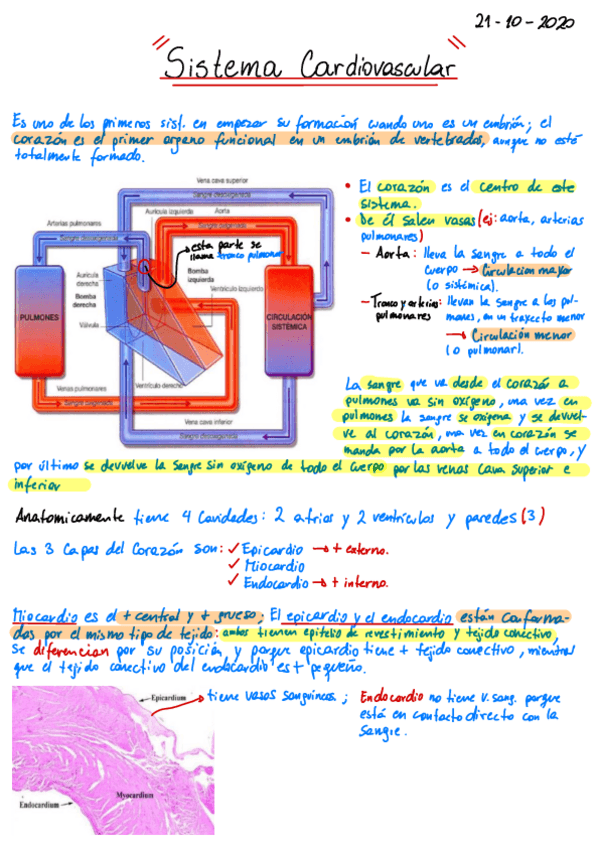 21-10-2020
"Sistema Cardiovascular"
Es uno de los primeros sist. en empezar su formación cuando uno es un embrión; el
corazón es el primer organo funcional en un embrión de vertebrados, aunque no esté
totalmente formado.
Vena cava superior
Sangre desoxigenada
Aurícula izquierda
Aorta
Sangre oxigenada
Arterias pulmonares
Sangre desoxigenada
esta parte se
llama tronco pulmonar
Aurícula
derecha
Bomba
izquierda
Bomba
derecha
Ventrículo izquierdo
PULMONES
CIRCULACIÓN
SISTÉMICA
Válvula
Ventrículo derecho
Venas pulmonares
Sangre oxigenada
Vena cava inferior
Sangre desoxigenada
• El corazón es el centro de este
sistema.
• De él salen vasos (ej: aorta, arterias
pulmonares)
- Aorta: lleva la sangre a todo el
cuerpo → Circulacion mayor
(o sistémica).
- Tronco y arterias: llevan la sangre a los pul-
pulmonares mones, en un trayecto menor
→ Circulación menor
(o pulmonar).
La sangre que va desde el corazón a
pulmones va sin oxígeno, una vez en
pulmones la sangre se oxigena y se devuel-
ve al corazón, una vez en corazón se
manda por la aorta a todo el cuerpo, y
por último se devuelve la sangre sin oxígeno de todo el cuerpo por las venas cava superior e
inferior
Anatomicamente tiene 4 cavidades: 2 atrios y 2 ventrículos y paredes (3)
Las 3 capas del Corazón son: ✓ Epicardio → + externo.
✓ Miocardio
✓ Endocardio → + interno.
Miocardio es el + central y + grueso; El epicardio y el endocardio están conforma-
das por el mismo tipo de tejido: ambos tienen epitelio de revestimiento y tejido conectivo,
se diferencian por su posición y porque epicardio tiene + tejido conectivo, mientras
que el tejido conectivo del endocardio es + pequeño.
Epicardium
→ tiene vasos sanguineos.;
Endocardio no tiene v. sang. porque
está en contacto directo con la
sangre.
Myocardium
Endocardium